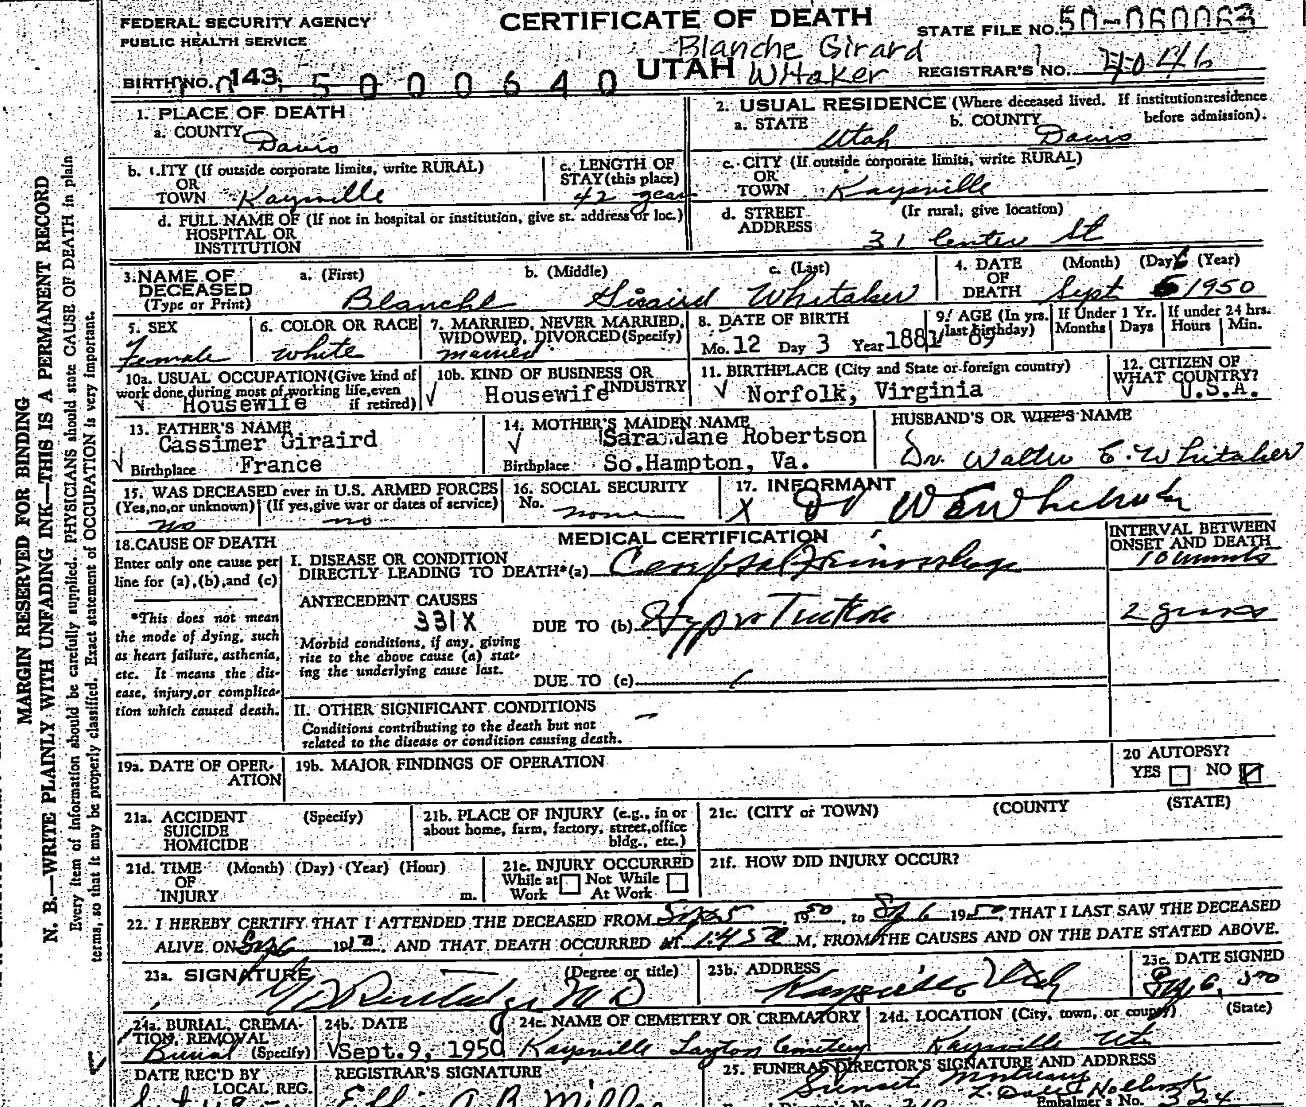 FEDERAL SECURITY AGENCY
PUBLIC HEALTH SERVICE
CERTIFICATE OF DEATH
STATE FILE NO. 50-060063
Blanche Girard
UTAH Whitaker
REGISTRAR'S NO. 4046
BIRTH NO. 143 5000640
MARGIN RESERVED FOR BINDING
N. B.—WRITE PLAINLY WITH UNFADING INK—THIS IS A PERMANENT RECORD
Every item of information should be carefully supplied. PHYSICIANS should state CAUSE OF DEATH in plain
terms, so that it may be properly classified. Exact statement of OCCUPATION is very important.
1. PLACE OF DEATH
a. COUNTY Davis
2. USUAL RESIDENCE (Where deceased lived. If institution: residence before admission).
a. STATE Utah b. COUNTY Davis
b. CITY (If outside corporate limits, write RURAL)
OR
TOWN Kaysville
c. LENGTH OF
STAY (this place)
42 years
c. CITY (If outside corporate limits, write RURAL)
OR
TOWN Kaysville
d. FULL NAME OF (If not in hospital or institution, give st. address or loc.)
HOSPITAL OR
INSTITUTION
d. STREET (If rural, give location)
ADDRESS
31 Center St
3. NAME OF
DECEASED
(Type or Print)
a. (First) b. (Middle) c. (Last)
Blanche Giraird Whitaker
4. DATE
OF
DEATH
(Month) (Day) (Year)
Sept 6 1950
5. SEX
Female
6. COLOR OR RACE
White
7. MARRIED, NEVER MARRIED,
WIDOWED, DIVORCED (Specify)
married
8. DATE OF BIRTH
Mo. 12 Day 3 Year 1881
9. AGE (In yrs.
last birthday)
69
If Under 1 Yr.
Months Days
If under 24 hrs.
Hours Min.
10a. USUAL OCCUPATION (Give kind of
work done during most of working life, even
if retired)
Housewife
10b. KIND OF BUSINESS OR
INDUSTRY
Housewife
11. BIRTHPLACE (City and State or foreign country)
Norfolk, Virginia
12. CITIZEN OF
WHAT COUNTRY?
U.S.A.
13. FATHER'S NAME
Cassimer Giraird
Birthplace France
14. MOTHER'S MAIDEN NAME
Sara Jane Robertson
Birthplace So.Hampton, Va.
HUSBAND'S OR WIFE'S NAME
Dr. Walter E. Whitaker
15. WAS DECEASED ever in U.S. ARMED FORCES
(Yes, no, or unknown) (If yes, give war or dates of service)
no no
16. SOCIAL SECURITY
No. none
17. INFORMANT
X Dr W E Whitaker
18. CAUSE OF DEATH
Enter only one cause per
line for (a), (b), and (c)
*This does not mean
the mode of dying, such
as heart failure, asthenia,
etc. It means the dis-
ease, injury, or complica-
tion which caused death.
MEDICAL CERTIFICATION
INTERVAL BETWEEN
ONSET AND DEATH
I. DISEASE OR CONDITION
DIRECTLY LEADING TO DEATH*(a)
ANTECEDENT CAUSES
331X
DUE TO (b)
Morbid conditions, if any, giving
rise to the above cause (a) stat-
ing the underlying cause last.
DUE TO (c)
II. OTHER SIGNIFICANT CONDITIONS
Conditions contributing to the death but not
related to the disease or condition causing death.
19a. DATE OF OPER-
ATION
19b. MAJOR FINDINGS OF OPERATION
20 AUTOPSY?
YES NO
21a. ACCIDENT (Specify)
SUICIDE
HOMICIDE
21b. PLACE OF INJURY (e.g., in or
about home, farm, factory, street, office
bldg., etc.)
21c. (CITY or TOWN) (COUNTY (STATE)
21d. TIME (Month) (Day) (Year) (Hour)
OF
INJURY m.
21e. INJURY OCCURRED
While at Not While
Work At Work
21f. HOW DID INJURY OCCUR?
22. I HEREBY CERTIFY THAT I ATTENDED THE DECEASED FROM Sep 5, 1950, to Sep 6 1950, THAT I LAST SAW THE DECEASED
ALIVE ON Sep 6 1950 AND THAT DEATH OCCURRED AT 1:45 M, FROM THE CAUSES AND ON THE DATE STATED ABOVE.
23a. SIGNATURE (Degree or title)
M D
23b. ADDRESS
Kaysville, Utah
23c. DATE SIGNED
Sep 6, 50
24a. BURIAL, CREMA-
TION, REMOVAL
(Specify)
Burial
24b. DATE
Sept. 9, 1950
24c. NAME OF CEMETERY OR CREMATORY
Kaysville Layton Cemetery
24d. LOCATION (City, town, or county) (State)
Kaysville Ut
DATE REC'D BY
LOCAL REG.
REGISTRAR'S SIGNATURE
25. FUNERAL DIRECTOR'S SIGNATURE AND ADDRESS
Embalmer's No. 324